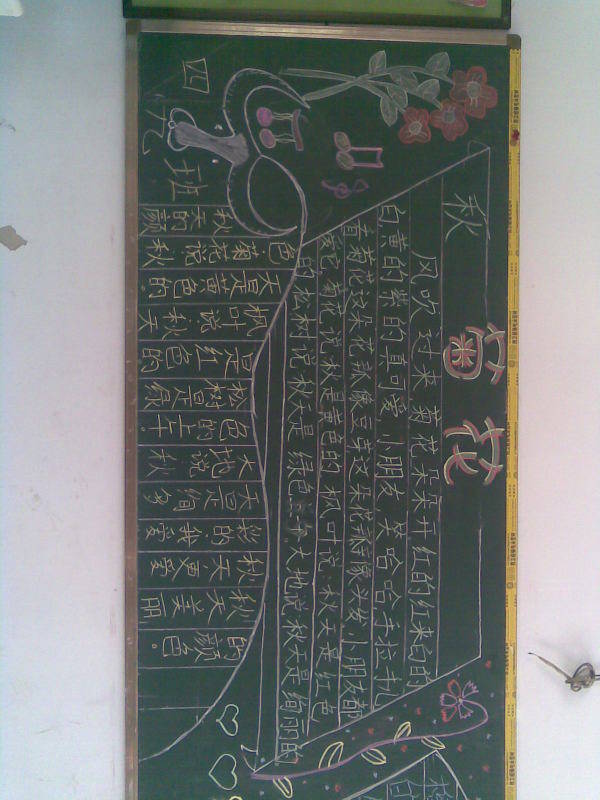 四九班
秋
菊花
风吹过来 菊花朵朵开 红的红来白的
白,黄的紫的真可爱,小朋友 笑哈哈,手拉
看菊花 这朵花瓣像豆芽 这朵花瓣像头发,小朋友都
爱它 菊花说,秋是黄色的 枫叶说 秋天是红色
的 松树说,秋天是 绿色 上午,大地说 秋天是绚丽的
秋天的颜
色 菊花说 秋
天是黄色的
枫叶说 秋天
是红色的
松树是绿
色的 上午
大地说 秋
天是绚多
彩的 我爱
秋天 更爱
秋天美丽
的颜色.